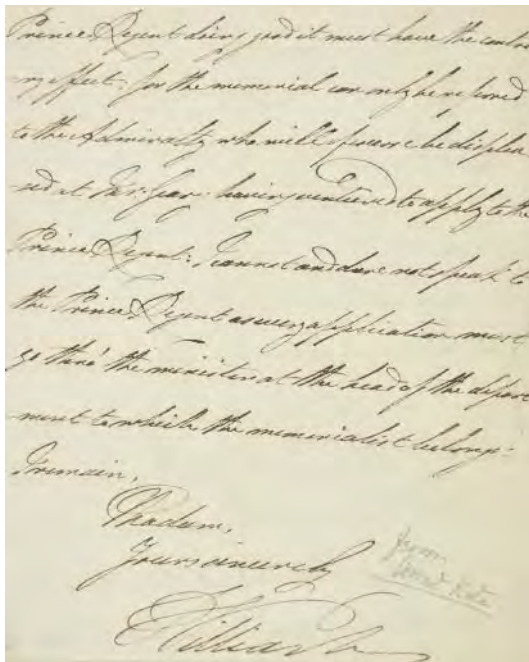 Prince Regent doing good it must have the contra
ry effect: for the memorial can only be referred
to the Admiralty who will of course be displea
sed at having ventured to apply to the
Prince Regent: I cannot and dare not speak to
the Prince Regent as every application must
go thro' the minister at the head of the depart
ment to which the memorialist belongs:
I remain,
Madam,
Yours sincerely
William